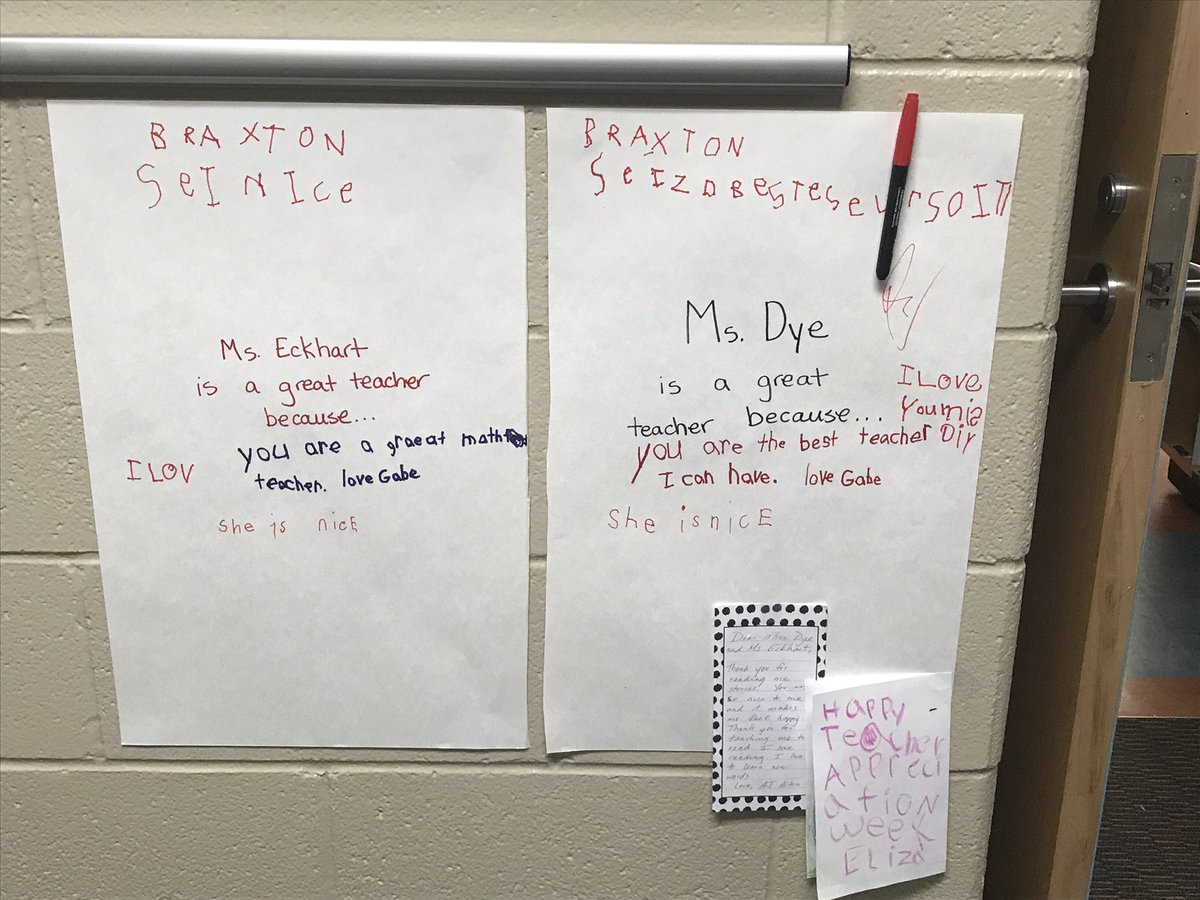 BRAXTON
SeI NIce
Ms. Eckhart
is a great teacher
because...
you are a graeat math
I LOV
teacher. love Gabe
she is nicE
BRAXTON
Ms. Dye
is a great
teacher because...
I Love
Youmis
you are the best teacher Diy
I can have. love Gabe
She is nicE
Dear Miss Dye
and Ms Eckhart,
Thank you for
reading me
stories. You
so nice to me
and it makes
me feel happy
Thank you for
teaching me to
read I love
reading I love
to learn new
words
Love, AJ
HAppy
Teacher
Appreci
ation
week
Eliza